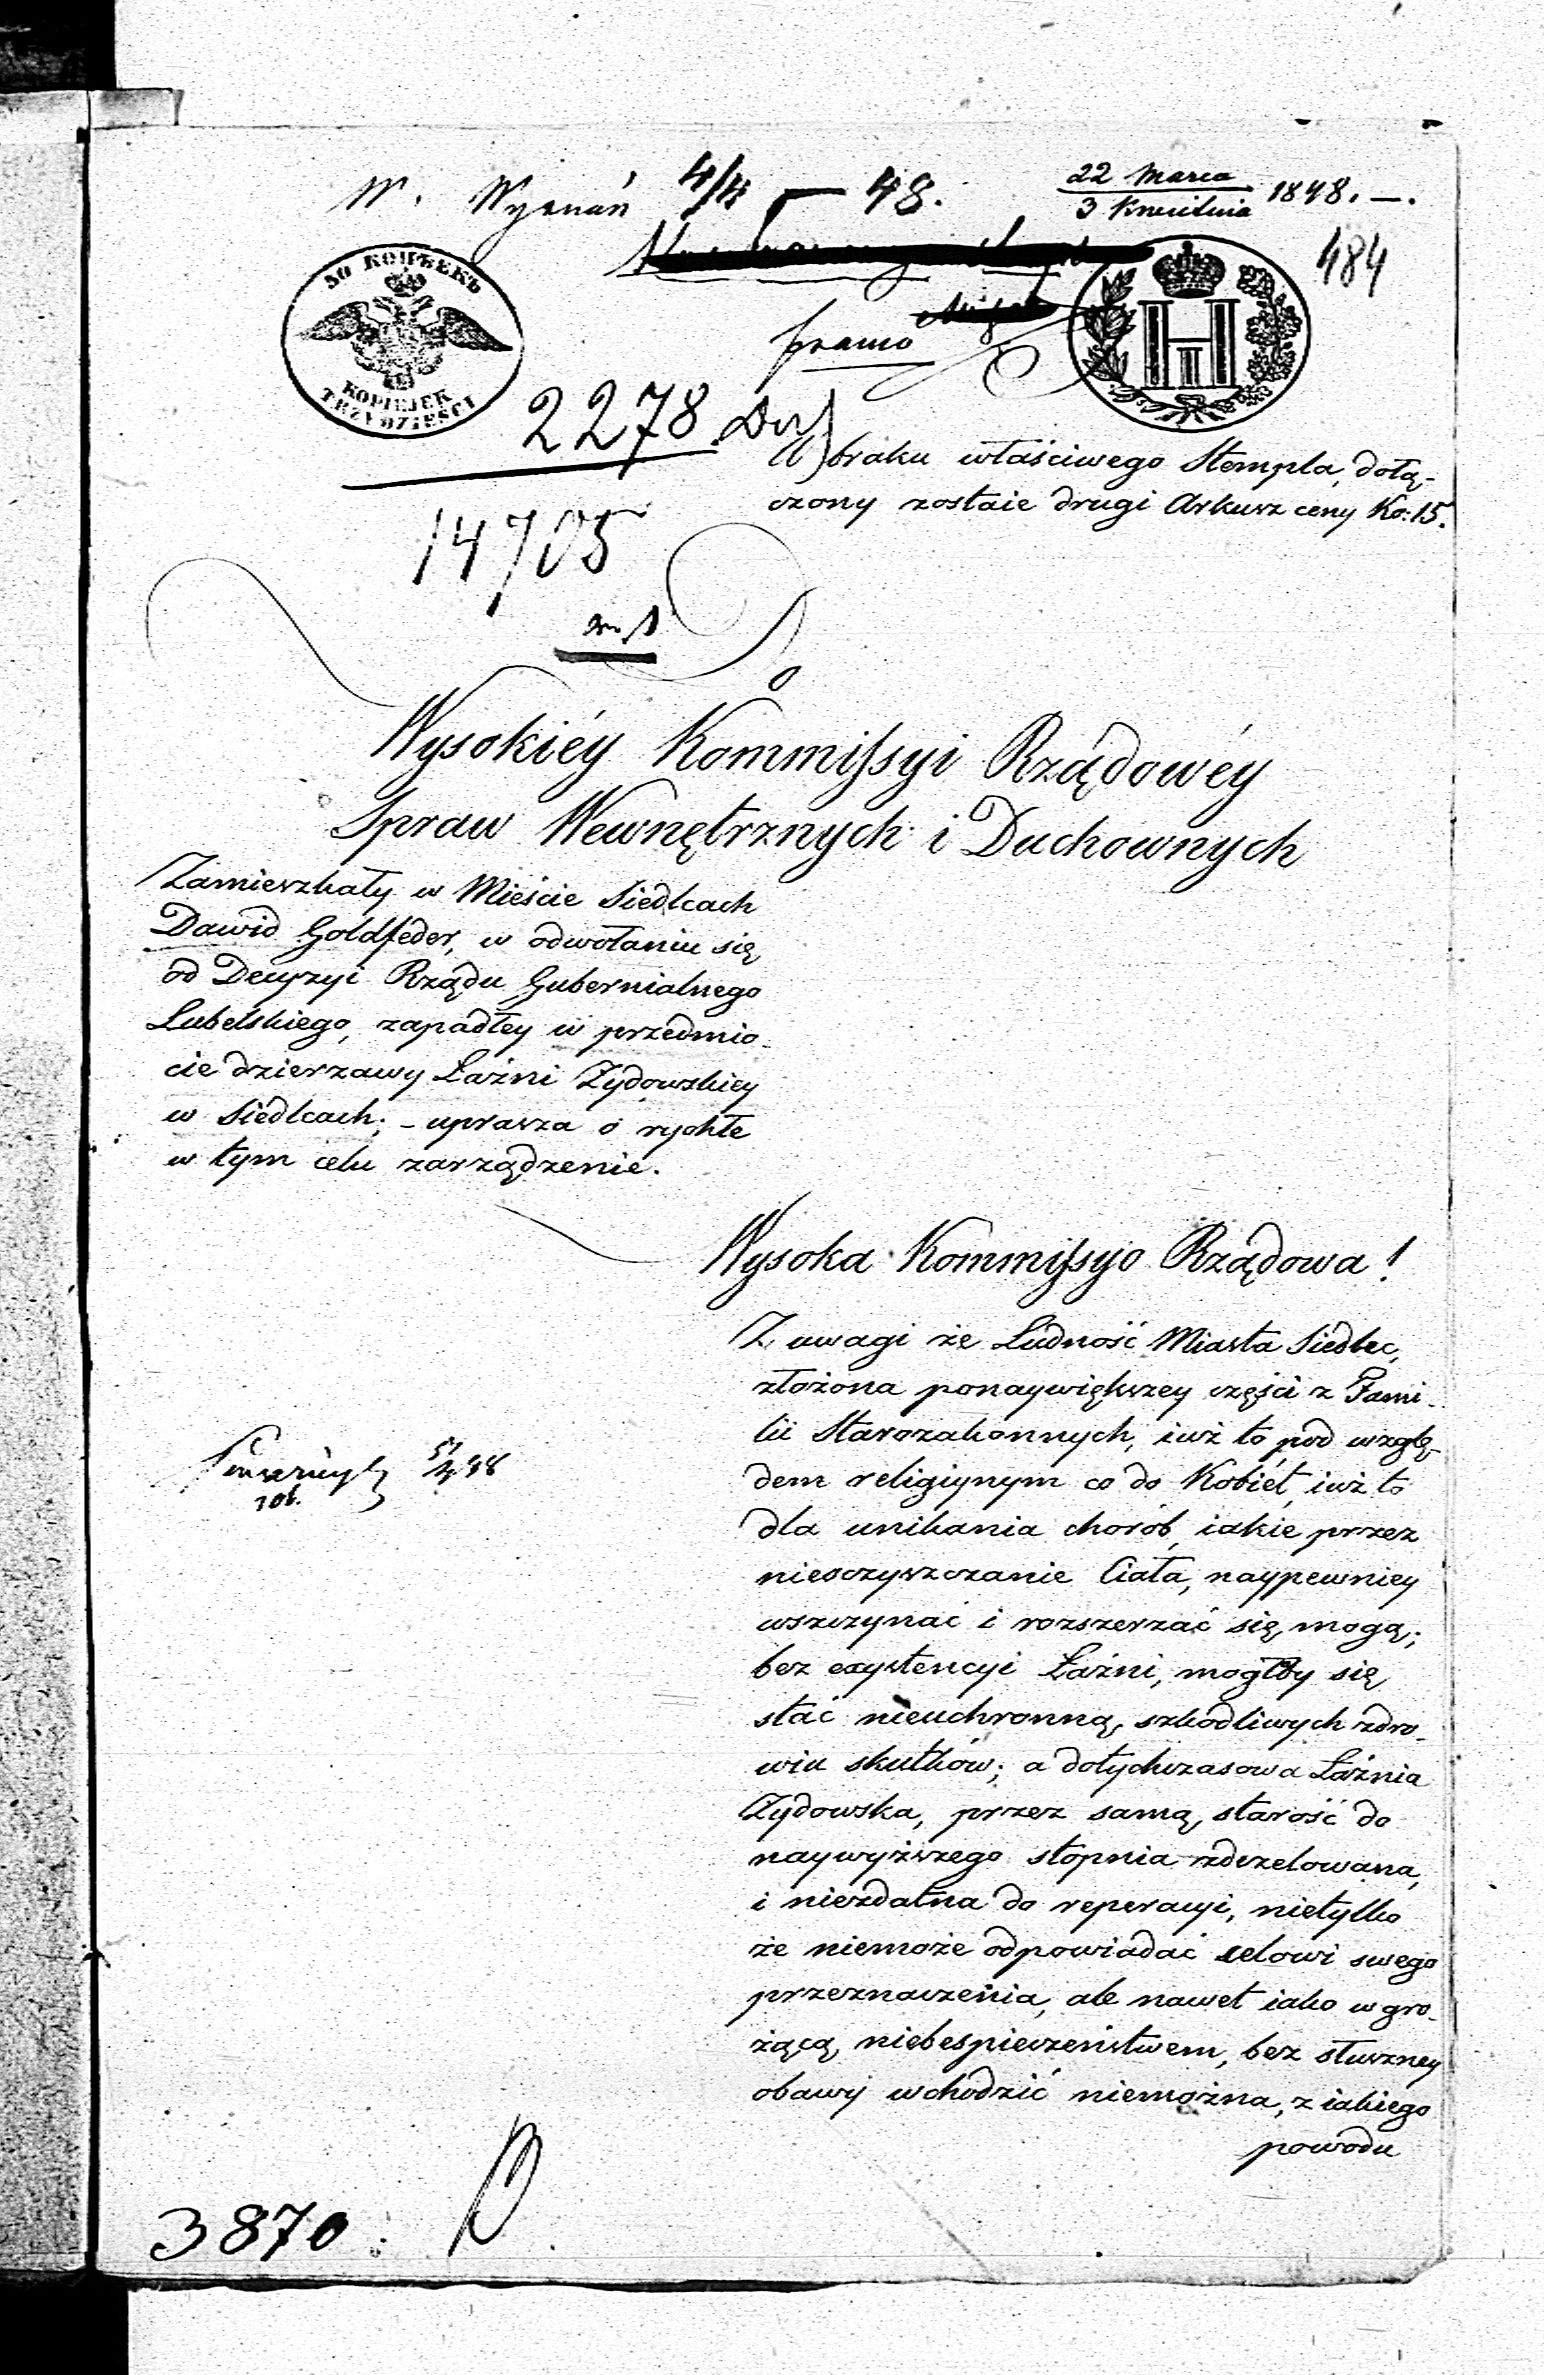 W. Wyznań 4/4 — 48.
22 Marca
3 Kwietnia 1848. —.
484
30 КОПѢЕКЪ
KOPIEJEK
TRZYDZIEŚCI
H
I
franco
2278
14705
W braku właściwego Stempla, dołą-
czony zostaie drugi Arkusz ceny Ko: 15.
Wysokiéy Kommissyi Rządowéy
Spraw Wewnętrznych i Duchownych
Zamieszkały w Mieście Siedlcach
Dawid Goldfeder, w odwołaniu się
od Decyzyi Rządu Gubernialnego
Lubelskiego, zapadłey w przedmio-
cie dzierzawy Łaźni Żydowskiey
w Siedlcach; – uprasza o rychłe
w tym celu zarządzenie.
Wysoka Kommissyo Rządowa!
Z uwagi że Ludność Miasta Siedlec,
złożona ponaywiększey części z Fami-
lii Starozakonnych, iuż to pod wzglę-
dem religiynym co do Kobiet, iuż to
dla unikania chorób, iakie przez
nieoczyszczanie Ciała, naypewniey
wszczynać i rozszerzać się mogą;
bez exystencyi Łaźni, mogłby się
stać nieuchronną, szkodliwych zdro-
wiu skutków; a dotychczasowa Łaźnia
Żydowska, przez samą starość do
naywyższego stopnia zdezelowana,
i niezdatna do reperacyi, nietylko
że niemoże odpowiadać celowi swego
przeznaczenia, ale nawet iako w gro-
żącą niebespieczeństwem, bez słuszney
obawy wchodzić niemożna, z iakiego
powodu
5/4 48
3870